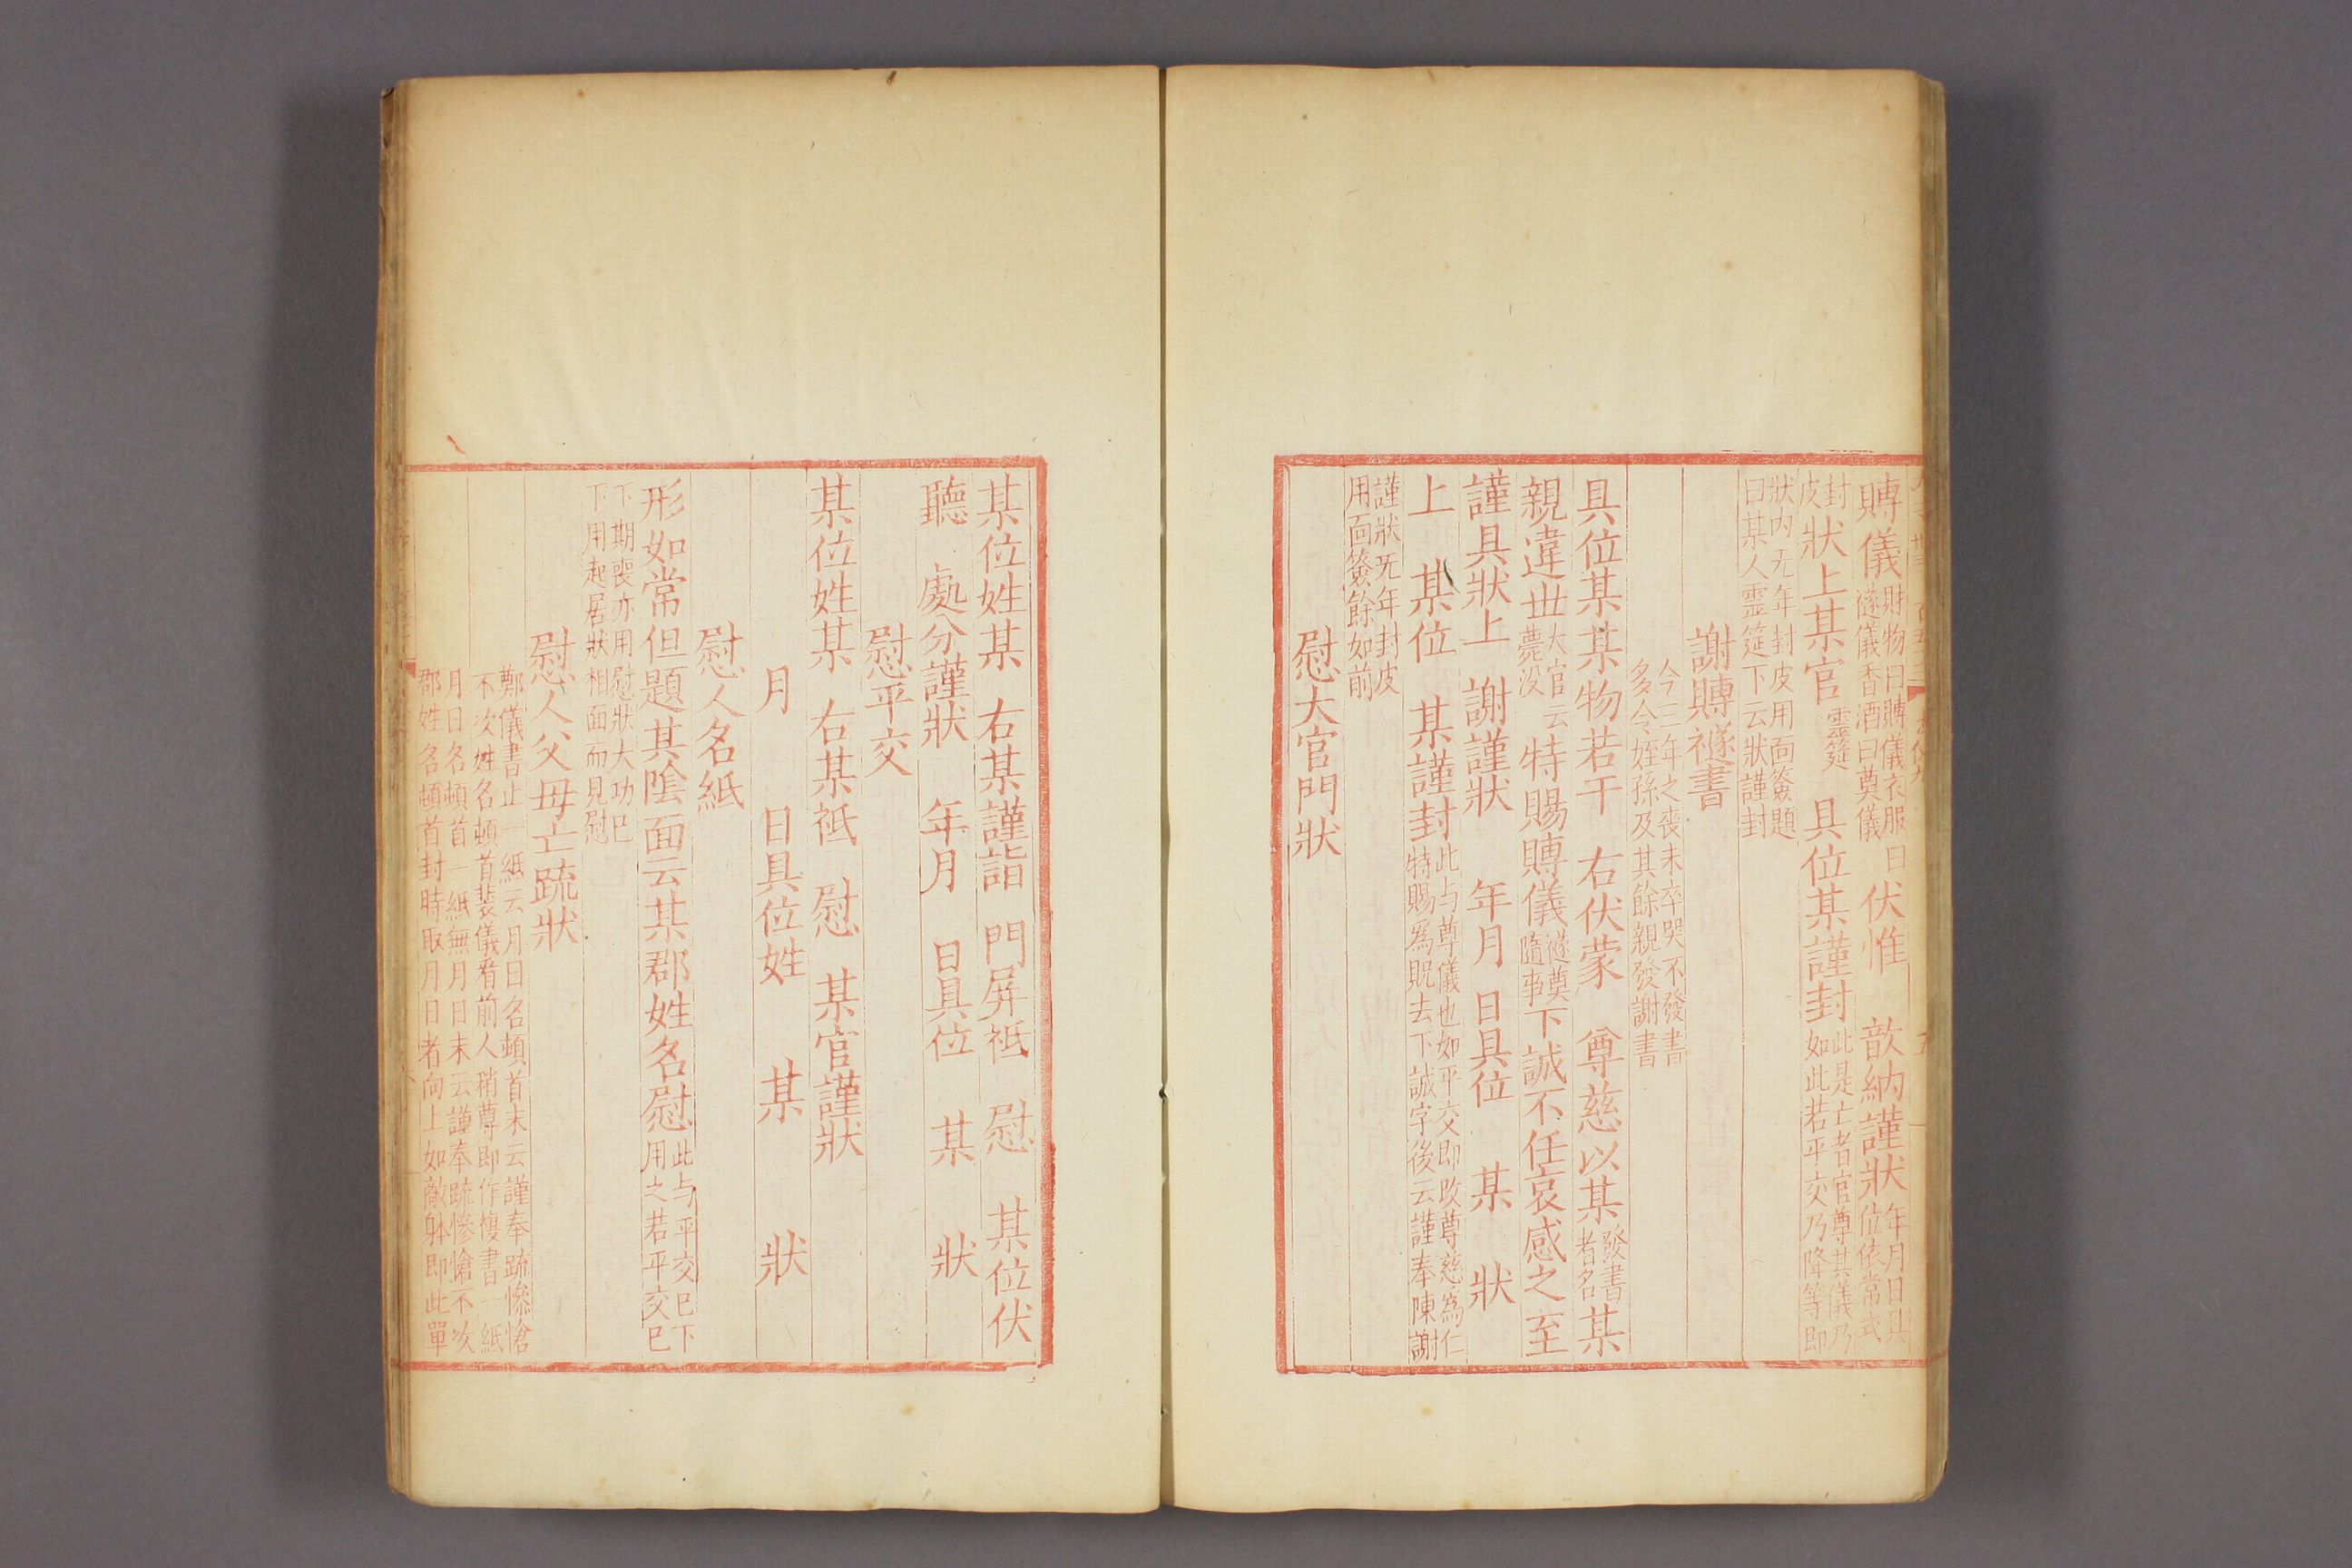 賻儀財物曰賻儀衣服曰襚儀香酒曰奠儀伏惟 歆納謹狀年月日具位依常式
封皮狀上某官靈筵 具位某謹封此是亡者官尊其儀乃如此若平交乃降等即
狀内无年封皮用面簽題曰某人靈筵下云狀謹封
謝賻襚書
今三年之喪未卒哭不發書多令姪孫及其餘親發謝書
具位某某物若干 右伏蒙 尊慈以某發書者名某
親違世大官云薨没特賜賻儀襚奠隨事下誠不任哀感之至
謹具狀上 謝謹狀 年月 日具位 某 狀
上 某位 某謹封此与尊儀也如平交即改尊慈爲仁特賜爲貺去下誠字後云謹奉陳謝
謹狀无年封皮用面簽餘如前
慰大官門狀
某位姓某 右某謹詣 門屏祗 慰 某位伏
聽 處分謹狀 年月 日具位 某 狀
慰平交
某位姓某 右某祗 慰 某官謹狀
月 日具位姓 某 狀
慰人名紙
形如常但題其陰面云某郡姓名慰此与平交已下用之若平交已
下期喪亦用慰狀大功已下用起居狀相面而見慰
慰人父母亡疏狀
鄭儀書止一紙云月日名頓首末云謹奉疏慘愴
不次姓名頓首裴儀看前人稍尊即作複書一紙
月日名頓首一紙無月日末云謹奉疏慘愴不次
郡姓名頓首封時取月日者向上如敵躰即此單